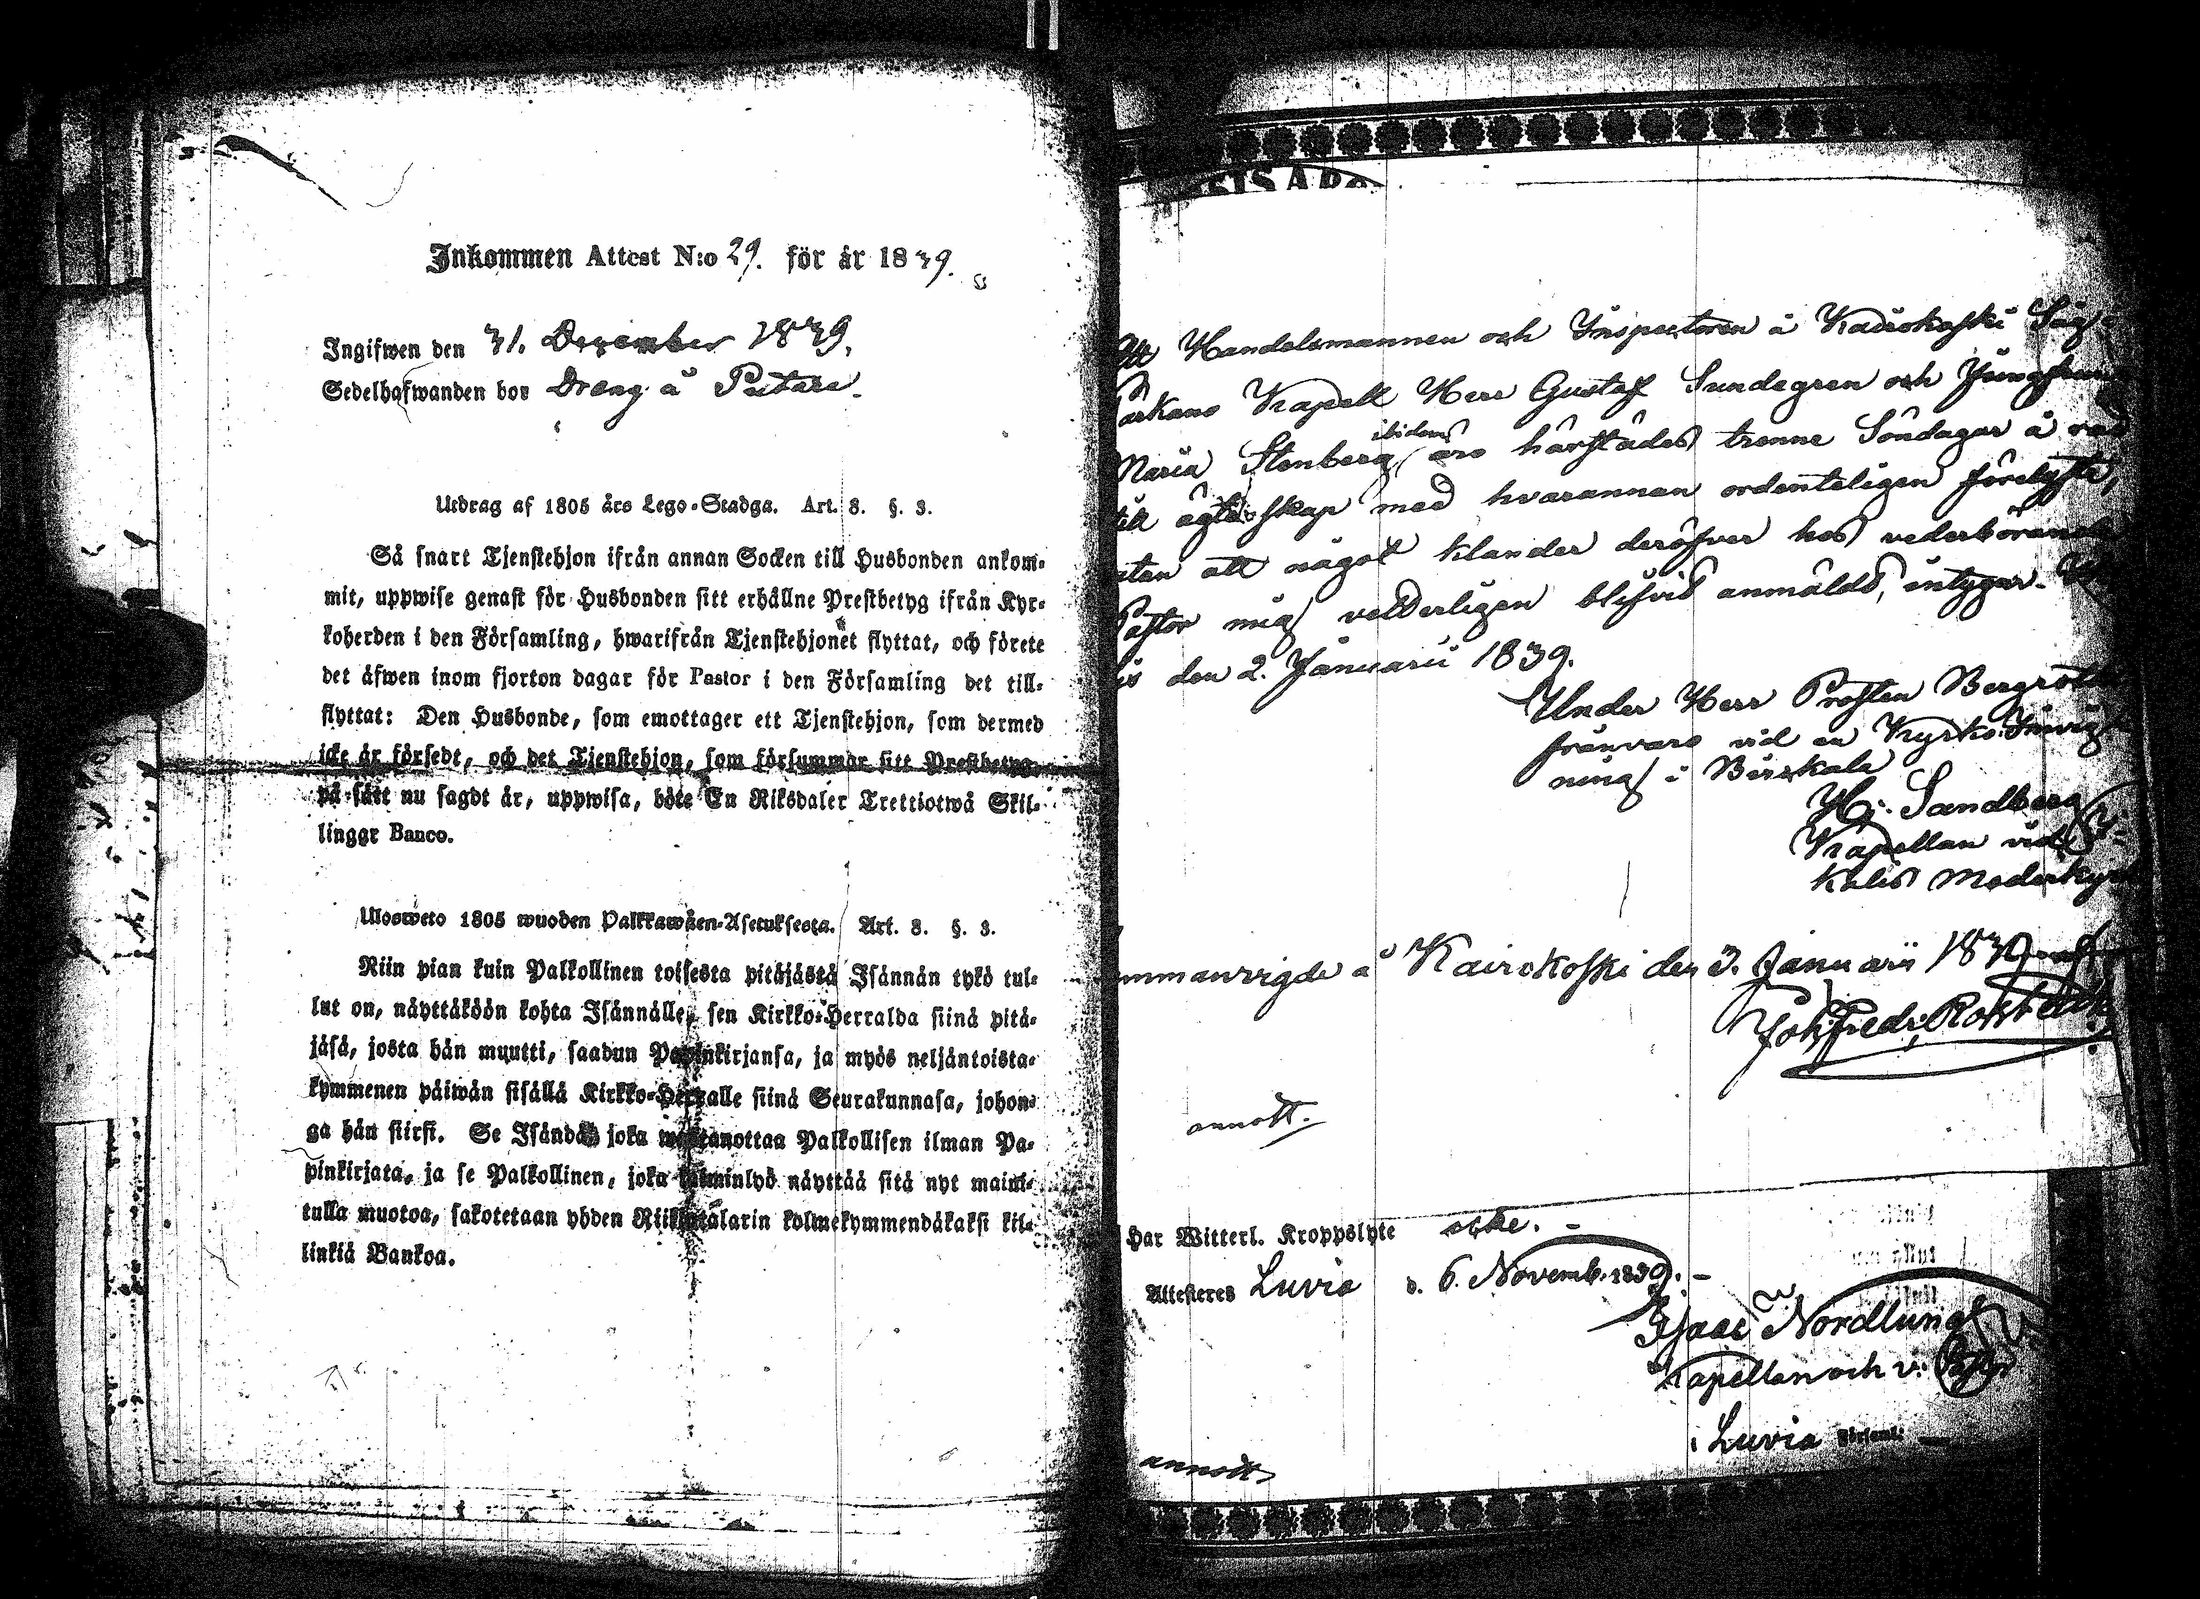 Inkommen Attest N:o 29. för år 1839.
Ingifwen den 31. December 1839.
Sedelhafwanden bor Dreng å Putara.
Utdrag af 1805 års Lego-Stadga. Art. 8. §. 3.
Så snart Tjenstehjon ifrån annan Socken till Husbonden ankom-
mit, uppwise genast för Husbonden sitt erhållne Prestbetyg ifrån Kyr-
koherden i den Församling, hwarifrån Tjenstehjonet flyttat, och förete
det äfwen inom fjorton dagar för Pastor i den Församling det till-
flyttat: Den Husbonde, som emottager ett Tjenstehjon, som dermed
icke är försedt, och det Tjenstehjon, som försummar sitt Prestbetyg,
på sätt nu sagdt är, uppwisa, böte En Riksdaler Trettiotwå Skil-
lingar Banco.
Ulosweto 1805 wuoden Palkkawäen-Asetuksesta. Art. 8. §. 3.
Niin pian kuin Palkollinen toisesta pitäjästä Isännän tykö tul-
lut on, näyttäköön kohta Isännälle, sen Kirkko-Herralda siinä pitä-
jäsä, josta hän muutti, saadun Papinkirjansa, ja myös neljäntoista-
kymmenen päiwän sisällä Kirkko-Herralle siinä Seurakunnasa, johon-
ga hän siirsi. Se Isändä joka wastanottaa Palkollisen ilman Pa-
pinkirjata, ja se Palkollinen, joka laiminlyö näyttää sitä nyt maini-
tulla muotoa, sakotetaan yhden Riikintalarin kolmekymmendäkaksi kil-
linkiä Bankoa.
Att Handelsmannen och Inspectoren å Kairokoski Såg
Parkano Kapell Herr Gustaf Sundegren och Jungfrun
Maria Stenberg ibidem äro härstädes trenne Söndagar å rad
till ägtenskap med hvarannan ordenteligen förelyste,
utan att något klander deröfver hos vederbörande
Pastor mig vetterligen blifvit anmäldt, intygar.
den 2. Januarii 1839.
Under Herr Prosten Bergroth
frånvaro vid en Kyrko-Invig
ning i Birkala
H: Sandberg
Kapellan vid
kalis Moderkyrk
ammanvigde å Kairokoski den 3. Januarii 1839
Joh: Fredr:
annott.
Har Witterl. Kroppslyte icke. -
Attesteres Luvia d. 6. Novemb. 1839. -
Isaac Nordlund
Kapellan och v. Pastor
i Luvia Församl:
annott